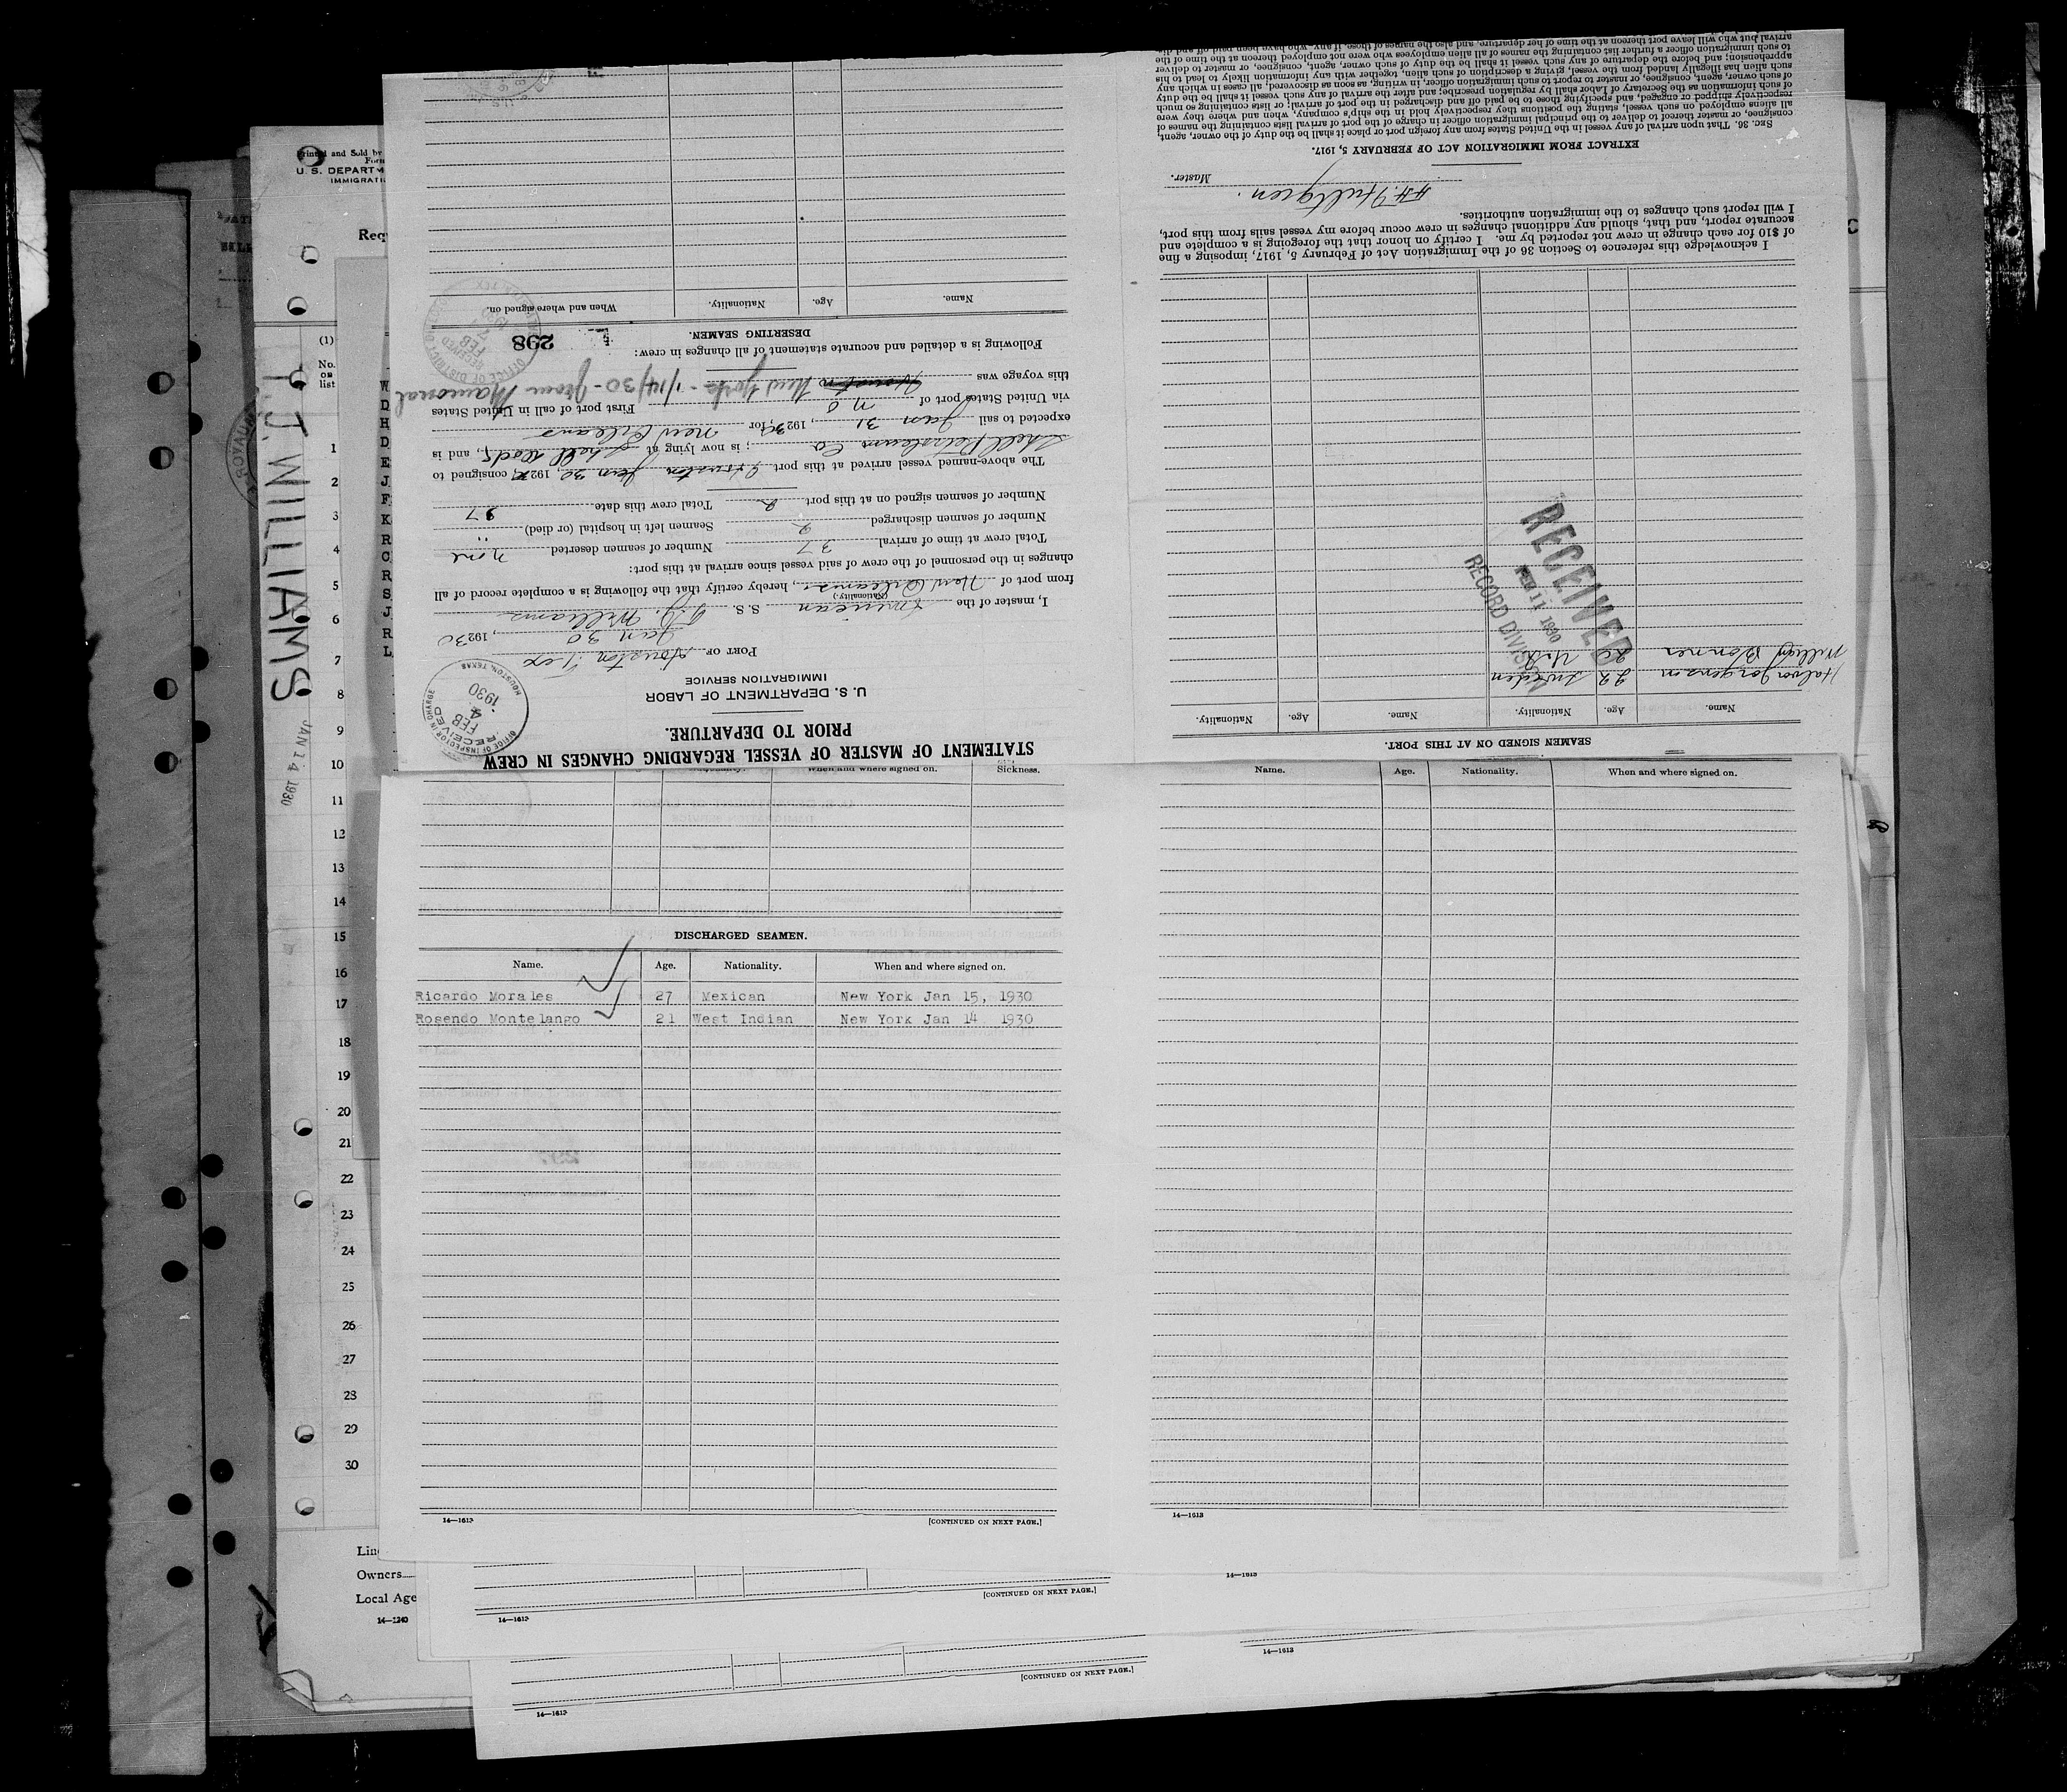 Printed and Sold by
Form
U. S. DEPARTM
IMMIGRATI
Req
(1)
No.
on
list
T. J. WILLIAMS
JAN 14 1930
W
D
H
D
E
J
F
K
R
C
R
S
J
R
L
1
2
3
4
5
6
7
8
9
10
11
12
13
14
15
16
17
18
19
20
21
22
23
24
25
26
27
28
29
30
Lin
Owners
Local Age
14—1240
STATEMENT OF MASTER OF VESSEL REGARDING CHANGES IN CREW
PRIOR TO DEPARTURE.
U. S. DEPARTMENT OF LABOR
IMMIGRATION SERVICE
OFFICE OF INSPECTOR IN CHARGE
RECEIVED
FEB
4
1930
HOUSTON, TEXAS
PORT OF Houston Tex
Jan 30, 19230
I, master of the American S. S. T. J. Williams
(Nationality.)
from port of New Orleans, hereby certify that the following is a complete record of all
changes in the personnel of the crew of said vessel since arrival at this port:
Total crew at time of arrival 37 Number of seamen deserted none
Number of seamen discharged 2 Seamen left in hospital (or died) "
Number of seamen signed on at this port 2 Total crew this date 37
The above-named vessel arrived at this port Houston Jan 30, 192, consigned to
Shell Petroleum Co; is now lying at Shell Docks, and is
expected to sail Jan 31, 19230, for New Orleans
via United States port of N O First port of call in United States
this voyage was Houston New York - 1/14/30 - from Mamonal
Following is a detailed and accurate statement of all changes in crew:
298
OFFICE OF DISTRICT
RECEIVED
FEB
7
DESERTING SEAMEN.
Name. Age. Nationality. When and where signed on.
SEAMEN SIGNED ON AT THIS PORT.
Name. Age. Nationality. Name. Age. Nationality.
Halvor Jorgenson 22 Sweden
William Bonner U.S.
RECEIVED
FEB 11 1930
RECORD DIVISION
I acknowledge this reference to Section 36 of the Immigration Act of February 5, 1917, imposing a fine
of $10 for each change in crew not reported by me. I certify on honor that the foregoing is a complete and
accurate report, and that, should any additional changes in crew occur before my vessel sails from this port,
I will report such changes to the immigration authorities.
H. Hultgren.
Master.
EXTRACT FROM IMMIGRATION ACT OF FEBRUARY 5, 1917.
SEC. 36. That upon arrival of any vessel in the United States from any foreign port or place it shall be the duty of the owner, agent,
consignee, or master thereof to deliver to the principal immigration officer in charge of the port of arrival lists containing the names of
all aliens employed on such vessel, stating the positions they respectively hold in the ship's company, when and where they were
respectively shipped or engaged, and specifying those to be paid off and discharged in the port of arrival; or lists containing so much
of such information as the Secretary of Labor shall by regulation prescribe; and after the arrival of any such vessel it shall be the duty
of such owner, agent, consignee, or master to report to such immigration officer, in writing, as soon as discovered, all cases in which any
such alien has illegally landed from the vessel, giving a description of such alien, together with any information likely to lead to his
apprehension; and before the departure of any such vessel it shall be the duty of such owner, agent, consignee, or master to deliver
to such immigration officer a further list containing the names of all alien employees who were not employed thereon at the time of the
arrival but who will leave port thereon at the time of her departure, and also the names of those, if any, who have been paid off and dis
When and where signed on. Sickness.
DISCHARGED SEAMEN.
Name. Age. Nationality. When and where signed on.
Ricardo Morales 27 Mexican New York Jan 15, 1930
Rosendo Montelango 21 West Indian New York Jan 14 1930
14—1613
[CONTINUED ON NEXT PAGE.]
Name. Age. Nationality. When and where signed on.
14—1613
14—1613
[CONTINUED ON NEXT PAGE.]
14—1613
14—1613
[CONTINUED ON NEXT PAGE.]
14—1613